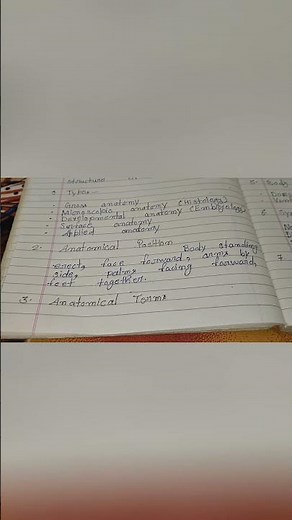 Structure
Types
- Gross anatomy
- Microscopic anatomy (Histology)
- Developmental anatomy (Embryology)
- Surface anatomy
- Applied anatomy
2. Anatomical Position
Body standing
erect, face forward, arms by
side, palms facing forward,
feet together.
3. Anatomical Terms
5. Body
- Dors
6
7